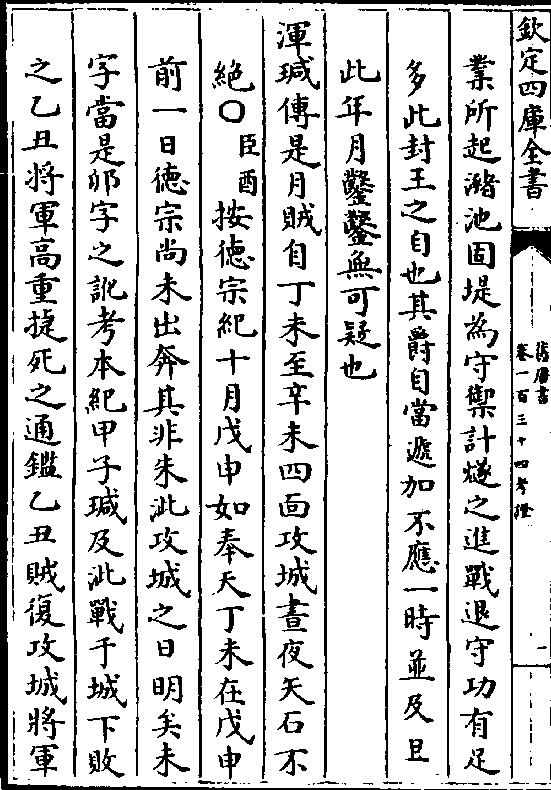 欽定四庫全書
舊唐書
卷一百三十四考證
業所起瀦池固堤為守禦計燧之進戰退守功有足
多此封王之自也其爵自當遞加不應一時並及且
此年月鑿鑿無可疑也
渾瑊傳是月賊自丁未至辛未四面攻城晝夜矢石不
絶〇臣酉按德宗紀十月戊申如奉天丁未在戊申
前一日德宗尚未出奔其非朱泚攻城之日明矣未
字當是卯字之訛考本紀甲子瑊及泚戰于城下敗
之乙丑將軍高重捷死之通鑑乙丑賊復攻城將軍